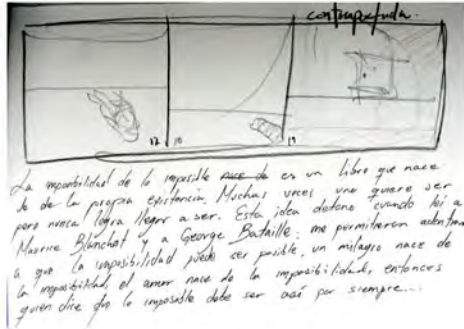 contraportada.
17 18 19
La imposibilidad de lo imposible nace de es un libro que nace
de de la propia existencia. Muchas veces uno quiere ser
pero nunca logra llegar a ser. Esta idea detono cuando leí a
Maurice Blanchot y a George Bataille; me permitieron
a que la imposibilidad puede ser posible, un milagro nace de
la imposibilidad, el amor nace de la imposibilidad, entonces
quien dice que lo imposible debe ser así por siempre...